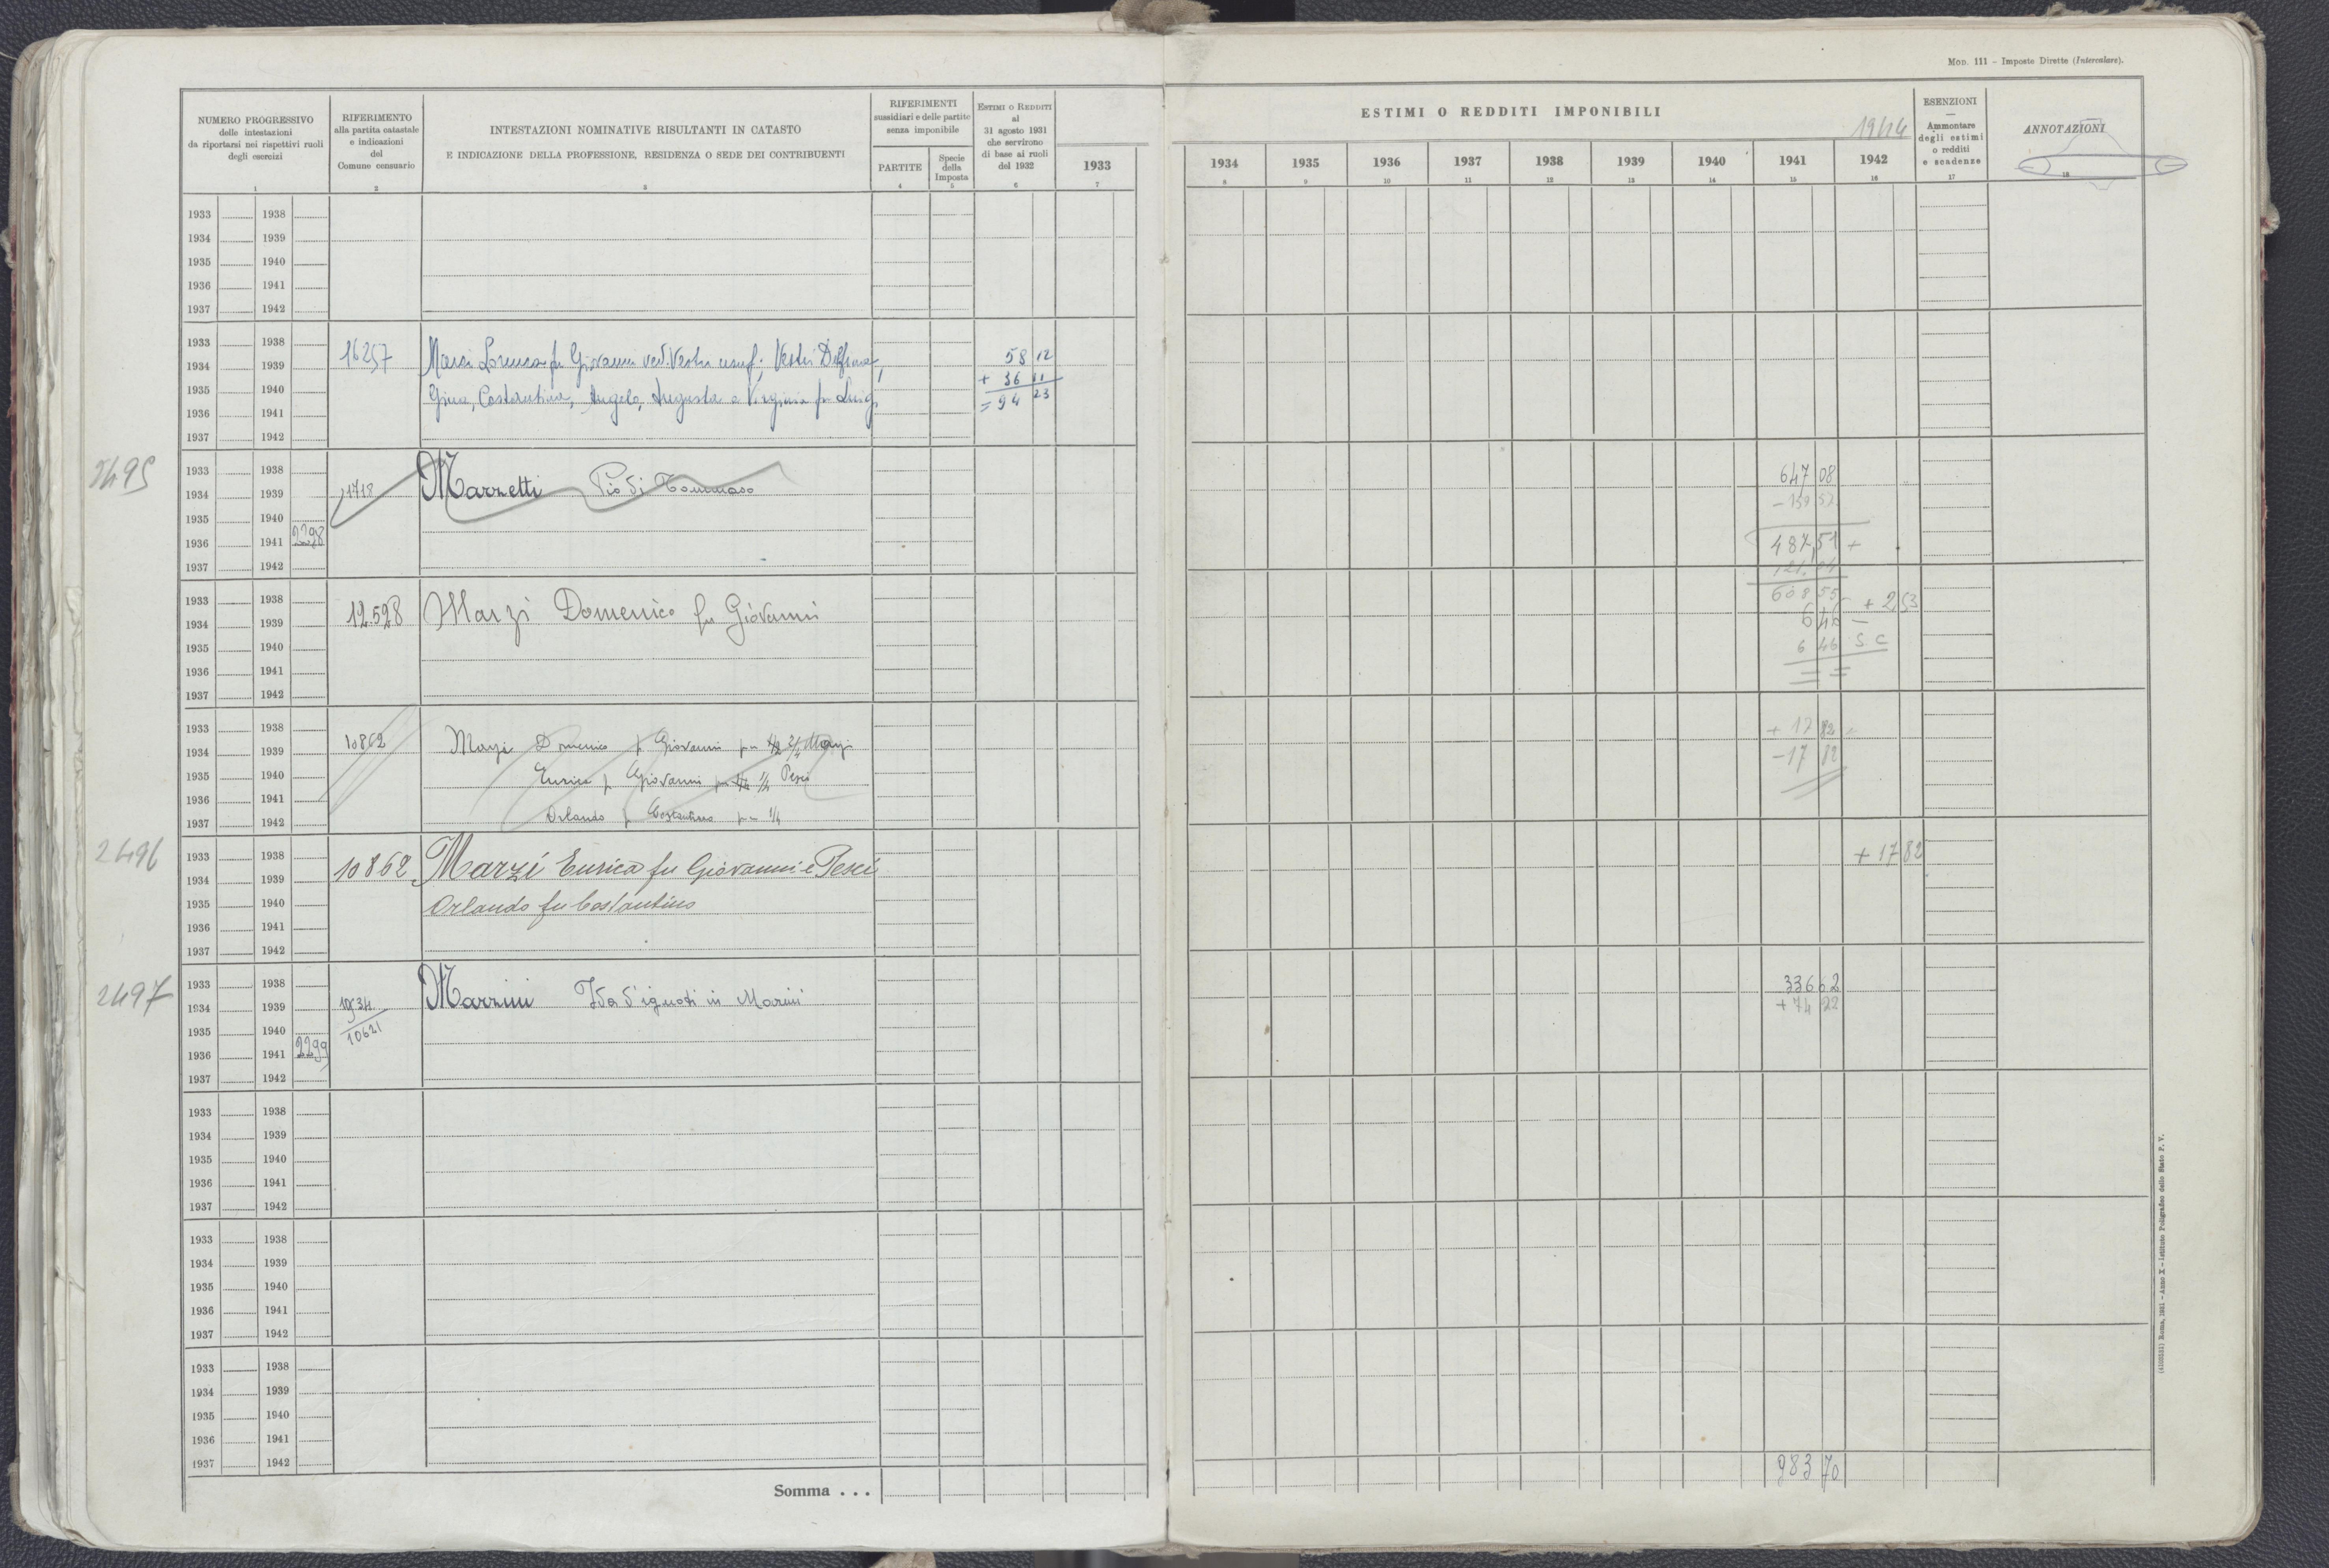 MOD. 111 – Imposte Dirette (Intercalare).
NUMERO PROGRESSIVO
delle intestazioni
da riportarsi nei rispettivi ruoli
degli esercizi
1
RIFERIMENTO
alla partita catastale
e indicazioni
del
Comune censuario
2
INTESTAZIONI NOMINATIVE RISULTANTI IN CATASTO
E INDICAZIONE DELLA PROFESSIONE, RESIDENZA O SEDE DEI CONTRIBUENTI
3
RIFERIMENTI
sussidiari e delle partite
senza imponibile
PARTITE
4
Specie
della
Imposta
5
ESTIMI O REDDITI
al
31 agosto 1931
che servirono
di base ai ruoli
del 1932
6
1933
7
ESTIMI O REDDITI IMPONIBILI
1944
1934 1935 1936 1937 1938 1939 1940 1941 1942
8 9 10 11 12 13 14 15 16
ESENZIONI
—
Ammontare
degli estimi
o redditi
e scadenze
17
ANNOTAZIONI
18
1933 1938
1934 1939
1935 1940
1936 1941
1937 1942
1933 1938
16257 fu Giovanni ved. Vestri usuf; Vestri 58 12
1934 1939
+ 36 11
1935 1940
Gina, Costantina, Angelo, Augusta e Virginia fu Luigi
= 94 23
1936 1941
1937 1942
2495
1933 1938
647 08
1934 1939
1718 Marzetti Pio di Tommaso
1935 1940
1936 1941 2298
487,51 +
1937 1942
608 55
1933 1938
12.528 Marzi Domenico fu Giovanni
+ 2,53
1934 1939
6 46 –
1935 1940
6 46 S.C
1936 1941
1937 1942
1933 1938
+ 17 82
1934 1939
10862 Marzi Domenico fu Giovanni per 1/2 2/4 Marzi
– 17 82
1935 1940
Enrica fu Giovanni per 1/4 Pesci
1936 1941
1937 1942
Orlando fu Costantino per 1/4
2496
1933 1938
10862 Marzi Enrica fu Giovanni e Pesci
+ 17 82
1934 1939
1935 1940
Orlando fu Costantino
1936 1941
1937 1942
2497
1933 1938
336 62
1934 1939
Marzini Ida d'ignoti in Marini
+ 74 22
1935 1940
10621
1936 1941 2299
1937 1942
1933 1938
1934 1939
1935 1940
1936 1941
1937 1942
1933 1938
1934 1939
1935 1940
1936 1941
1937 1942
1933 1938
1934 1939
1935 1940
1936 1941
1937 1942
983 70
Somma . . .
(4103531) Roma, 1931 – Anno X – Istituto Poligrafico dello Stato P. V.